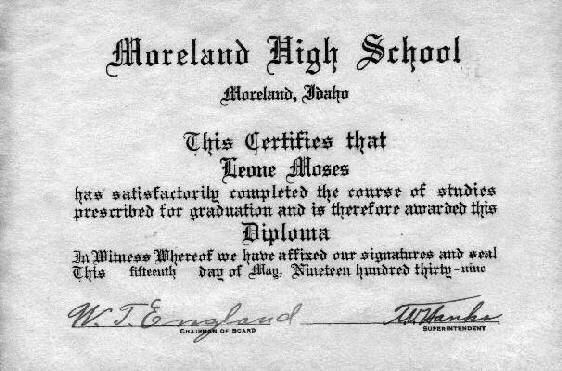 Moreland High School
Moreland, Idaho
This Certifies that
Leone Moses
has satisfactorily completed the course of studies
prescribed for graduation and is therefore awarded this
Diploma
In Witness Whereof we have affixed our signatures and seal
This fifteenth day of May, Nineteen hundred thirty-nine
W. T. England
CHAIRMAN OF BOARD
SUPERINTENDENT